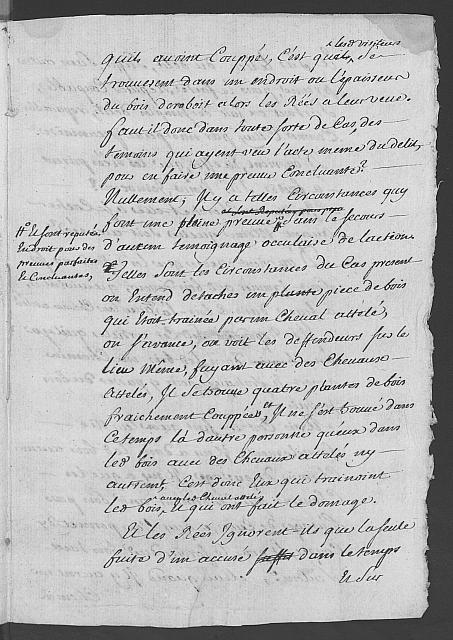 lesd visiteurs
quils avoint Couppé, C'est quils se
trouverent dans un endroit ou l'épaisseur
du bois deroboit alors les Rées a leur veue.
faut il donc dans toute forte de Cas, des
temoins qui ayent veu l'acte meme du delit,
pour en faire une preuve Concluante?
Nullement; Il y a telles Circonstances quy
font une pleine preuve sans le secours
d'aucun temoignage occulaire de laction.
# Et sont reputés
En droit pour des
preuves parfaites
& Concluantes,
Telles sont les Circonstances du Cas present
on Entend detachés un plante piece de bois
qui Etoit trainée par un Cheval attelé,
on s'avance, on voit les deffendeurs sur le
lieu même, fuyant avec des Chevaux
attelés, Il se trouve quatre plantes de bois
fraichement Couppées, et Il ne s'est trouvé dans
Ce temps là d'autre personne qu'eux dans
led bois avec des Chevaux attelés ny
autrement, C'est donc Eux qui trainoint
led bois, & qui ont fait le domage.
Et les Rées Ignorent-ils que la seule
fuite d'un accusé dans le temps
Et sur